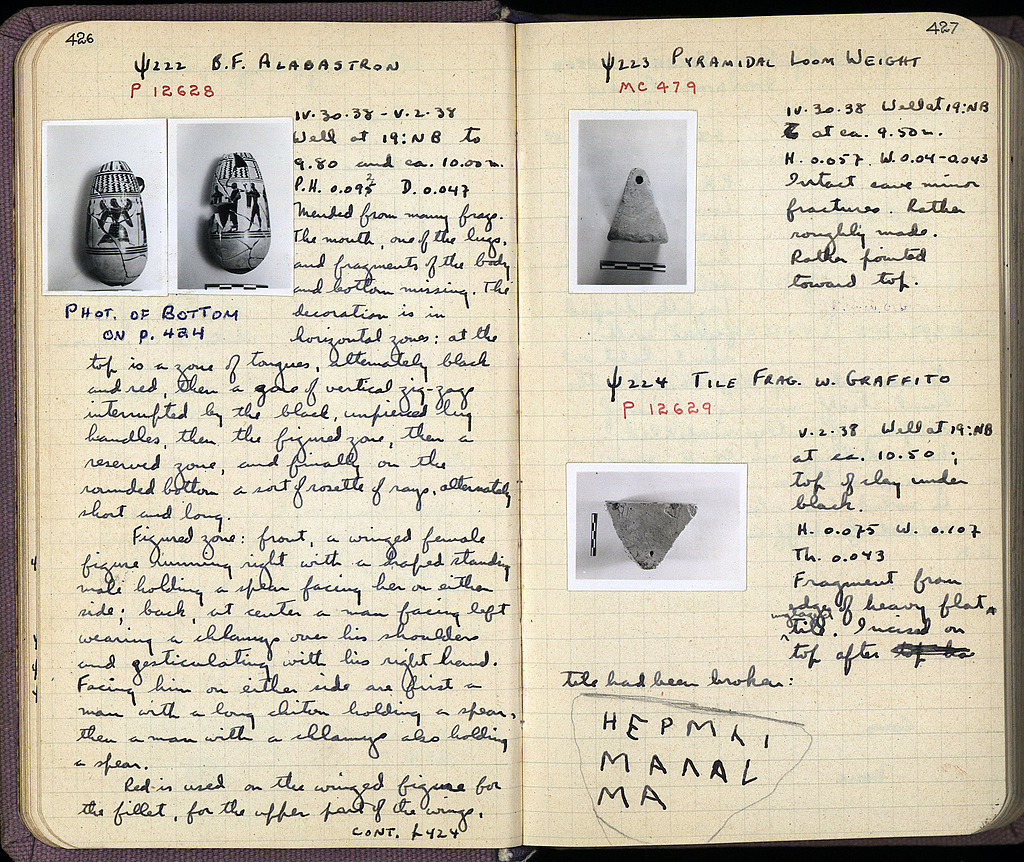 426
Ψ222 B.F. ALABASTRON
P 12628
IV.30.38 - V.2.38
Well at 19:NB to
9.80 and ca. 10.00 m.
P.H. 0.095 D. 0.047
Mended from many frags.
The mouth, one of the lugs,
and fragments of the body
and bottom missing. The
decoration is in
horizontal zones: at the
PHOT. OF BOTTOM
ON P. 424
top is a zone of tongues, alternately black
and red, then a zone of vertical zig-zags
interrupted by the black, unpierced lug
handles, then the figured zone, then a
reserved zone, and finally on the
rounded bottom a sort of rosette of rays, alternately
short and long.
Figured zone: front, a winged female
figure running right with a draped standing
male holding a spear facing her on either
side; back, at center a man facing left
wearing a chlamys over his shoulders
and gesticulating with his right hand.
Facing him on either side are first a
man with a long chiton holding a spear,
then a man with a chlamys also holding
a spear.
Red is used on the winged figure for
the fillet, for the upper part of the wings,
CONT. p 424
427
Ψ223 PYRAMIDAL LOOM WEIGHT
MC 479
IV.30.38 Well at 19:NB
at ca. 9.50 m.
H. 0.057 W. 0.04-0.043
Intact save minor
fractures. Rather
roughly made.
Rather pointed
toward top.
Ψ224 TILE FRAG. W. GRAFFITO
P 12629
V.2.38 Well at 19:NB
at ca. 10.50;
top of clay under
black.
H. 0.075 W. 0.107
Th. 0.043
Fragment from
edge of heavy flat
tile. Incised on
top after
tile had been broken:
ΗΕΡΜΑΙ
ΜΑΛΑΛ
ΜΑ